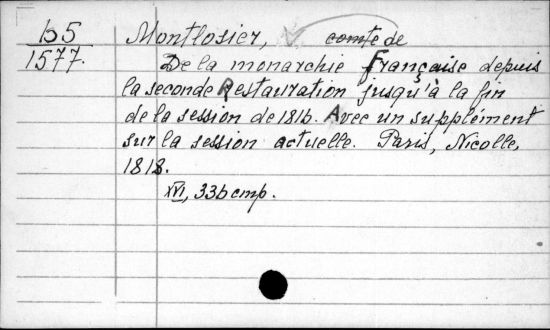 b5
1577.
Montlosier, comte de
De la monarchie Française depuis
la seconde Restauration jusqu'à la fin
de la session de 1816. Avec un supplément
sur la session actuelle. Paris, Nicolle,
1818.
XVI, 336 стр.